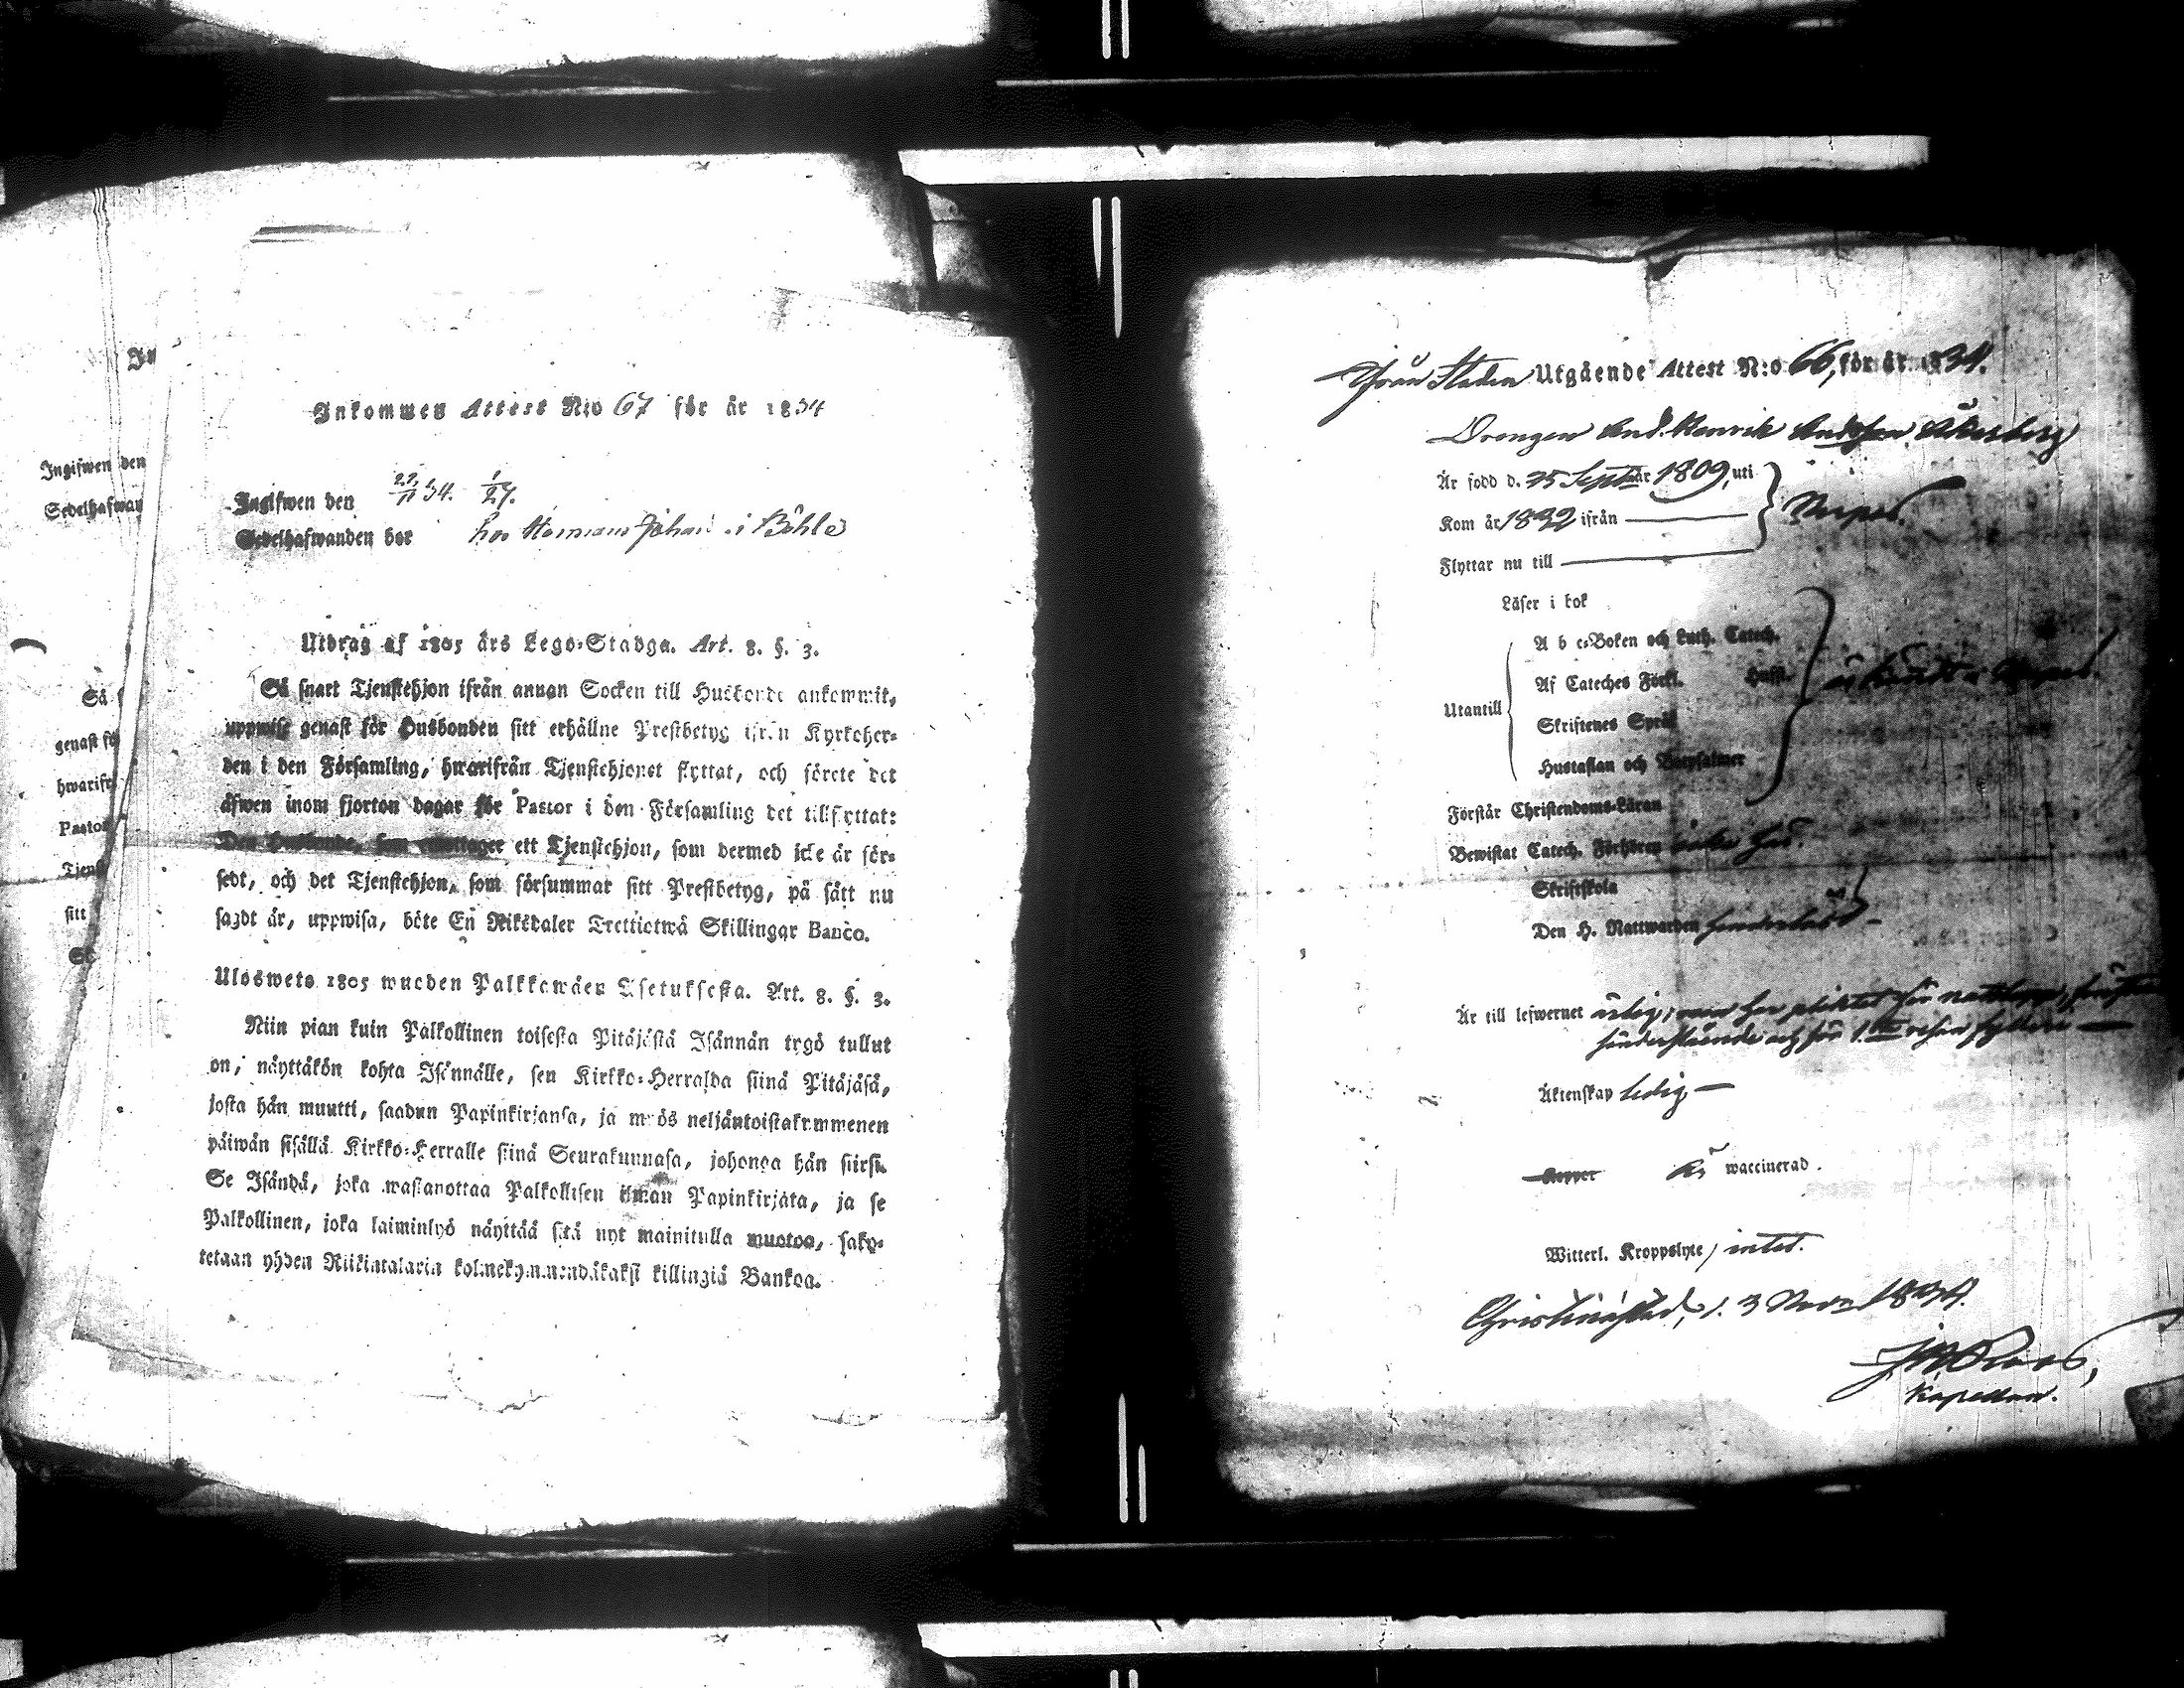 In
Ingifwen den
Sedelhafwan
Så
genast fö
hwarifr
Pastor
Tjenst
sitt
Inkommen Attest N:o 67 för år 1834
Ingifwen den 22/11 34. 1/27.
Sedelhafwanden bor hos Hermans Johan i Böhle
Utdrag af 1805 års Lego-Stadga. Art. 8. §. 3.
Så snart Tjenstehjon ifrån annan Socken till Husbonde ankommit,
uppwise genast för Husbonden sitt erhållne Prestbetyg ifrån Kyrkoher-
den i den Församling, hwarifrån Tjenstehjonet flyttat, och förete det
äfwen inom fjorton dagar för Pastor i den Församling det tillflyttat:
Den Husbonde, som emottager ett Tjenstehjon, som dermed icke är för-
sedt, och det Tjenstehjon, som försummar sitt Prestbetyg, på sätt nu
sagdt är, uppwisa, böte En Riksdaler Trettiotwå Skillingar Banco.
Ulosweto 1805 wuoden Palkkawäen Asetuksesta. Art. 8. §. 3.
Niin pian kuin Palkollinen toisesta Pitäjästä Isännän tygö tullut
on, näyttäkön kohta Isännälle, sen Kirkko-Herralda siinä Pitäjäsä,
josta hän muutti, saadun Papinkirjansa, ja myös neljäntoistakymmenen
päiwän sisällä Kirkko-Herralle siinä Seurakunnasa, johonga hän siirsi.
Se Isändä, joka wastanottaa Palkollisen ilman Papinkirjata, ja se
Palkollinen, joka laiminlyö näyttää sitä nyt mainitulla muotoa, sako-
tetaan yhden Riikintalarin kolmekymmendäkaksi killingiä Bankoa.
Från Staden Utgående Attest N:o 66, för år 1834.
Drengen And. Henrik Andersson Åkerberg
Är född d. 25 Sept. år 1809, uti
Kom år 1832 ifrån Nerpes.
Flyttar nu till
Läser i bok
A b c-Boken och Luth. Catech.
Af Cateches Förkl. Hufst. är känd i Nerpes.
Utantill
Skriftenes Språk
Hustaflan och Botpsalmer
Förstår Christendoms-Läran
Bewistat Catech. Förhören icke här.
Skriftskola
Den H. Nattwarden
Är till lefwernet ärlig, men har pliktat för
och för 1:sta resan fylleri
Äktenskap ledig
Kopper är waccinerad.
Witterl. Kroppslyte, intet.
Christinestad, d. 3 Nov. 1834.
Kapellan.